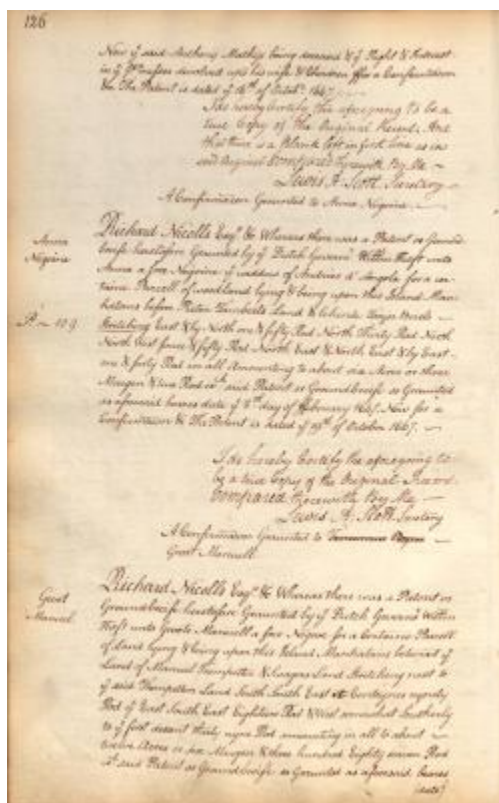 126
Now ye said Anthony Mathys being deceased & ye Right & Interest
in ye Premisses devolved upon his wife & Children &ca a Confirmation
&ca The Patent is dated ye 16th of Octobr 1667.
I do hereby Certify the aforegoing to be a
true Copy of the Original Record. And
that there is a blank left in first line as in
said Original Compared therewith By Me
Lewis A. Scott Secretary
A Confirmation Granted to Anna Negrinne.
Anna
Negrinne
Richard Nicolls Esqr &c Whereas there was a Patent or Ground
briefe heretofore Granted by ye Dutch Governr William Kieft unto
Anna a free Negrinne ye widdow of Andries d' Angola for a cer
taine Parcell of woodland lying & being upon this Island Man
hatans before Pieter Land &
P 109
Stretching East & by North one & fifty Rod North Thirty Rod North
North East four & fifty Rod North East & North East & by East
one & forty Rod in all Amounting to about six Acres or three
Morgen & five Rod wch said Patent or Groundbriefe so Granted
as aforesaid beares date ye 8th day of February 1647. Now for a
Confirmation &c The Patent is dated ye 19th of October 1667.
I do hereby Certify the aforegoing to
be a true Copy of the Original Record
Compared therewith By Me
Lewis A. Scott Secretary
A Confirmation Granted to
Groot Manuell
Groot
Manuel
Richard Nicolls Esqr &c Whereas there was a Patent or
Groundbriefe heretofore Granted by ye Dutch Governr William
Kieft unto Groote Manuell a free Negroe for a Certaine Parcell
of Land lying & being upon this Island Manhatans
Land of Manuel Trumpetter & Land Stretching next to
ye said Trumpetters Land South South East
Rod & East South East Eighteen Rod & West somewhat Southerly
to ye first descent thirty Rod amounting in all to about
twelve Acres or six Morgen & three hundred Eighty seven Rod
wch said Patent or Groundbriefe so Granted as aforesaid beares
(date)